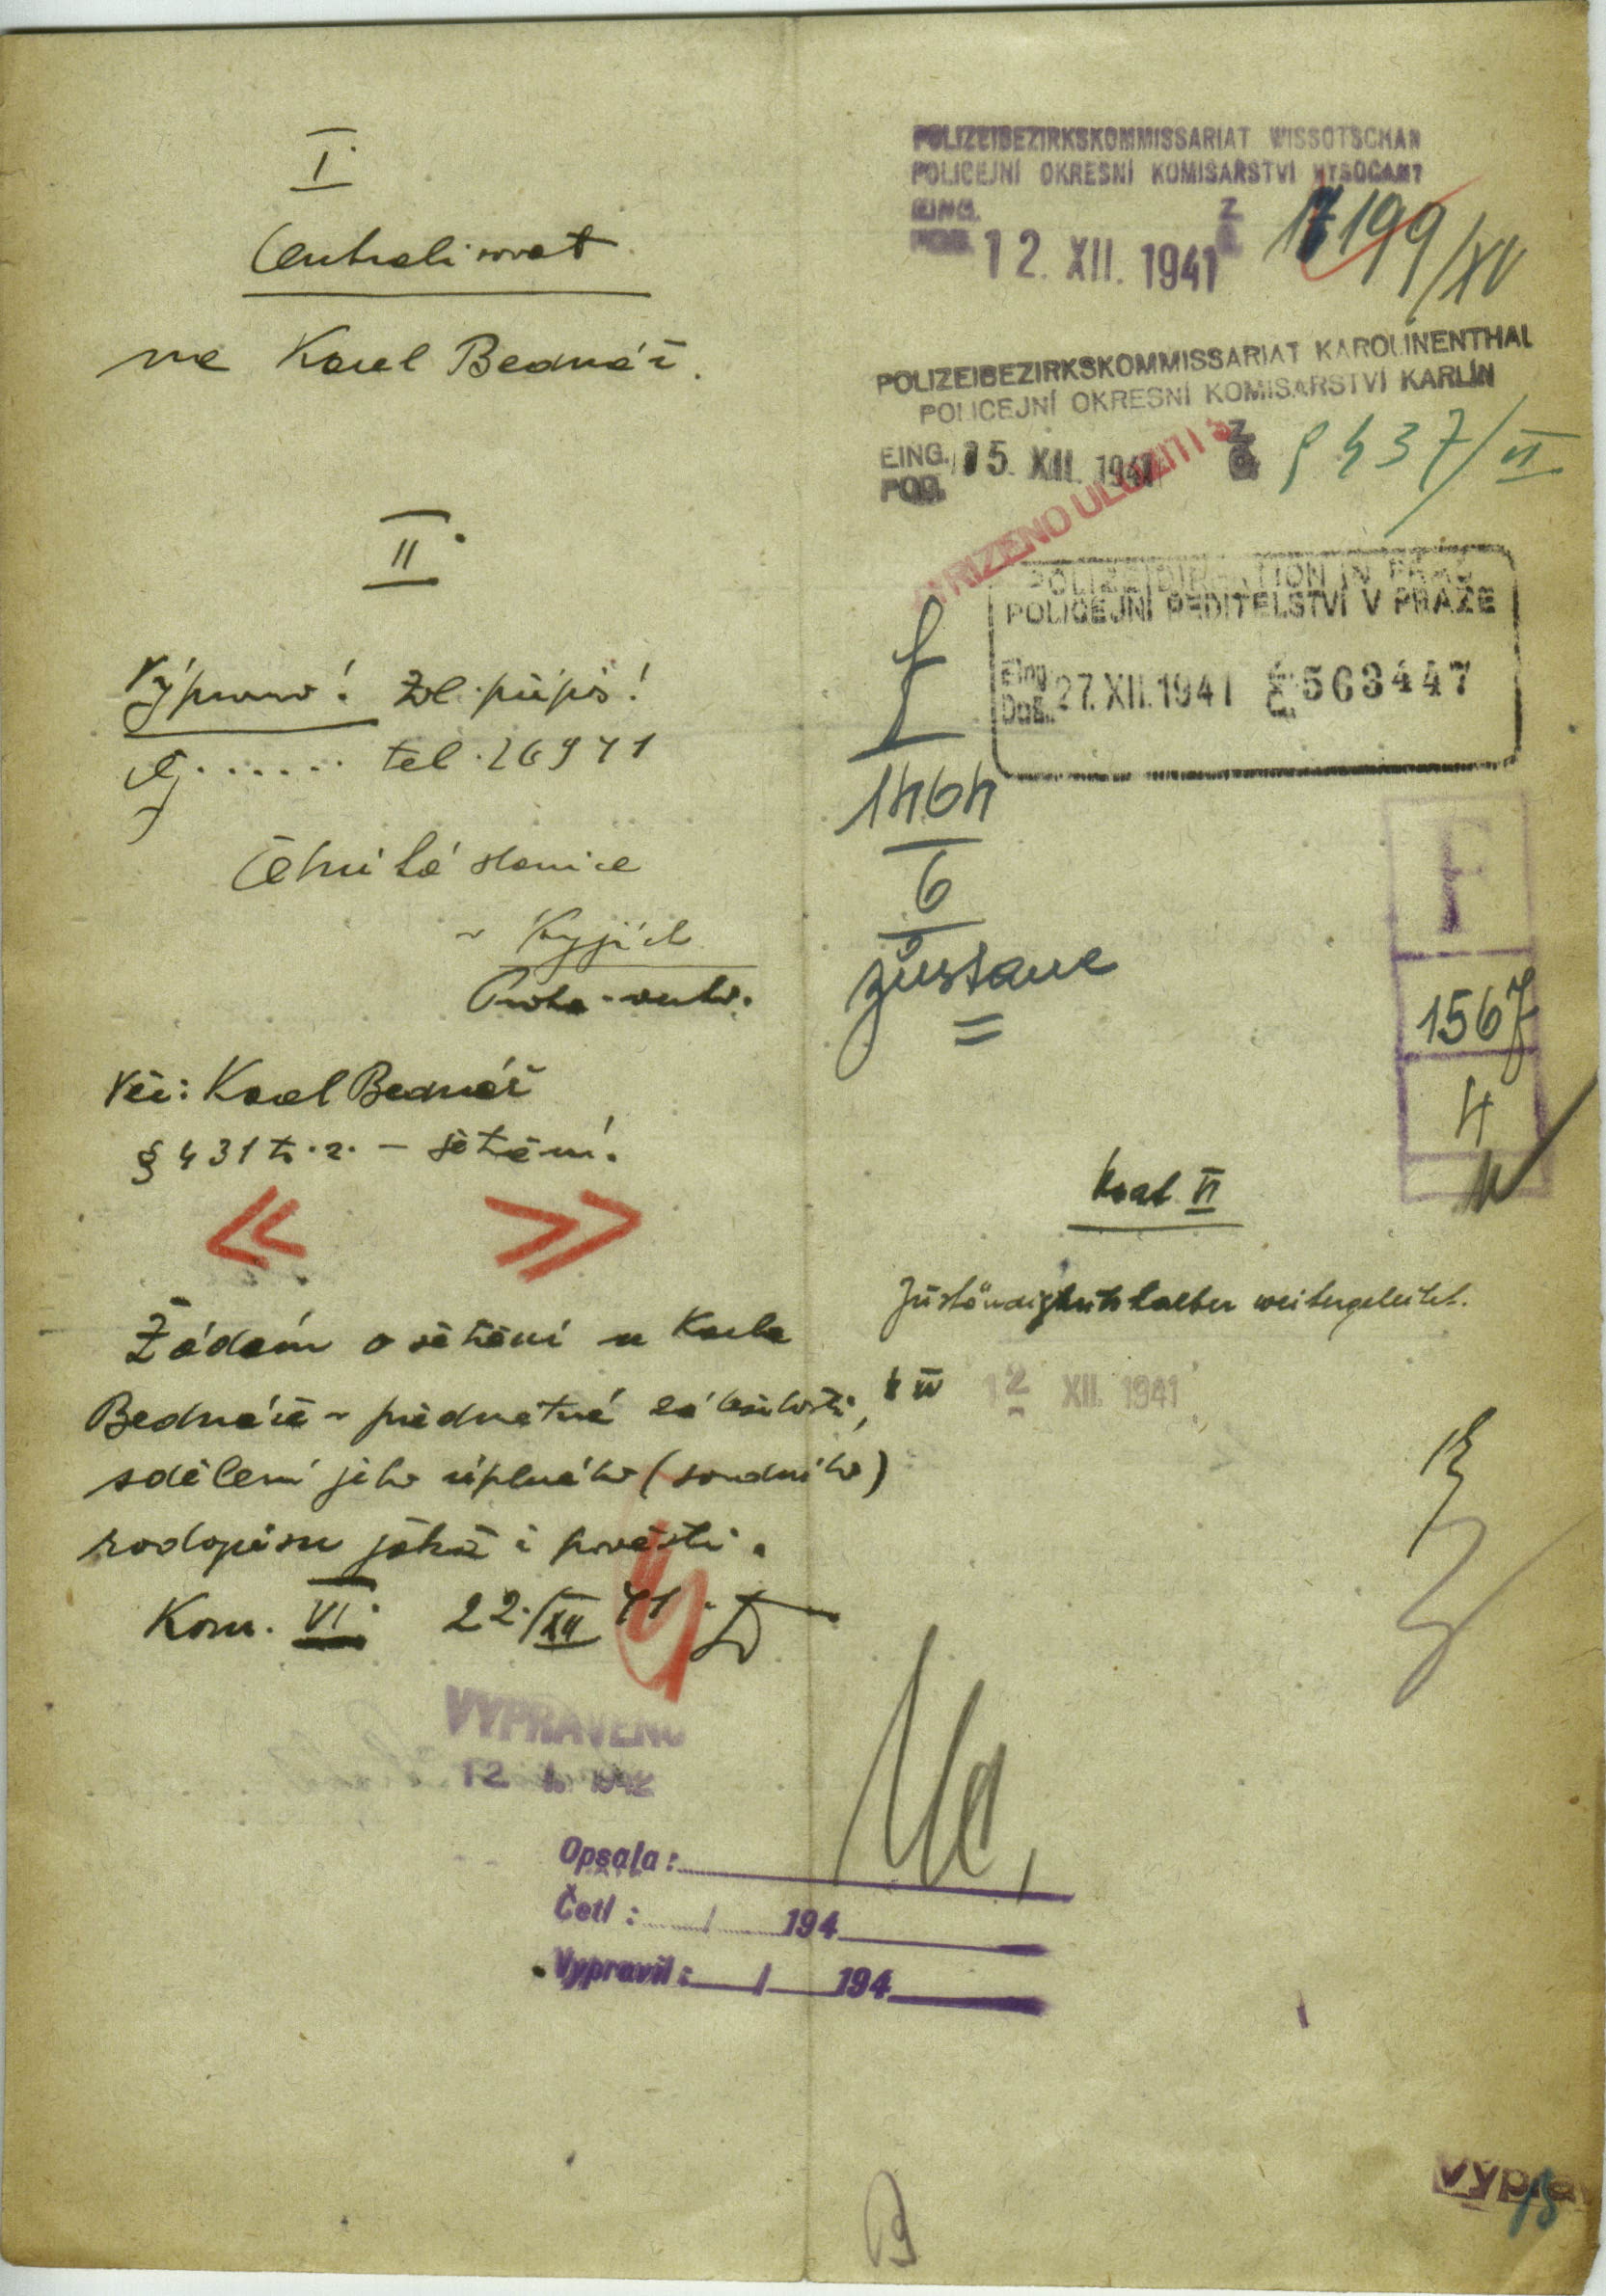 I.
Centralisovat
na Karel Bednář.
II.
Výprava! Zvl. přípis!
tel. 26941
Četnická stanice
v Kyjích
Praha - venkov.
Věc: Karel Bednář
§ 431 tr. z. – šetření.
Žádám o šetření u Karla
Bednáře v předmětné záležitosti,
sdělení jeho úplného (soudního)
rodopisu jakož i pověsti.
Kom. VI. 22./XII 41.
VYPRAVENO
12. 1. 1942
Opsala:
Četl: / 194
Vypravil: / 194
POLIZEIBEZIRKSKOMMISSARIAT WISSOTSCHAN
POLICEJNÍ OKRESNÍ KOMISAŘSTVÍ VYSOČANY
EING. Z.
POD. 12. XII. 1941 Č. 17199/XV
POLIZEIBEZIRKSKOMMISSARIAT KAROLINENTHAL
POLICEJNÍ OKRESNÍ KOMISARSTVÍ KARLÍN
EING. 15. XII. 1941 Z.
POD. Č. 8437/VI
ULOŽITI
POLIZEIDIREKTION IN PRAG
POLICEJNÍ ŘEDITELSTVÍ V PRAZE
Eing.
Doš. 27. XII. 1941 563447
1464
6
zůstane
F
1567
4
Koat VI
Zuständigkeitshalber weitergeleitet.
12 XII. 1941
Vypra